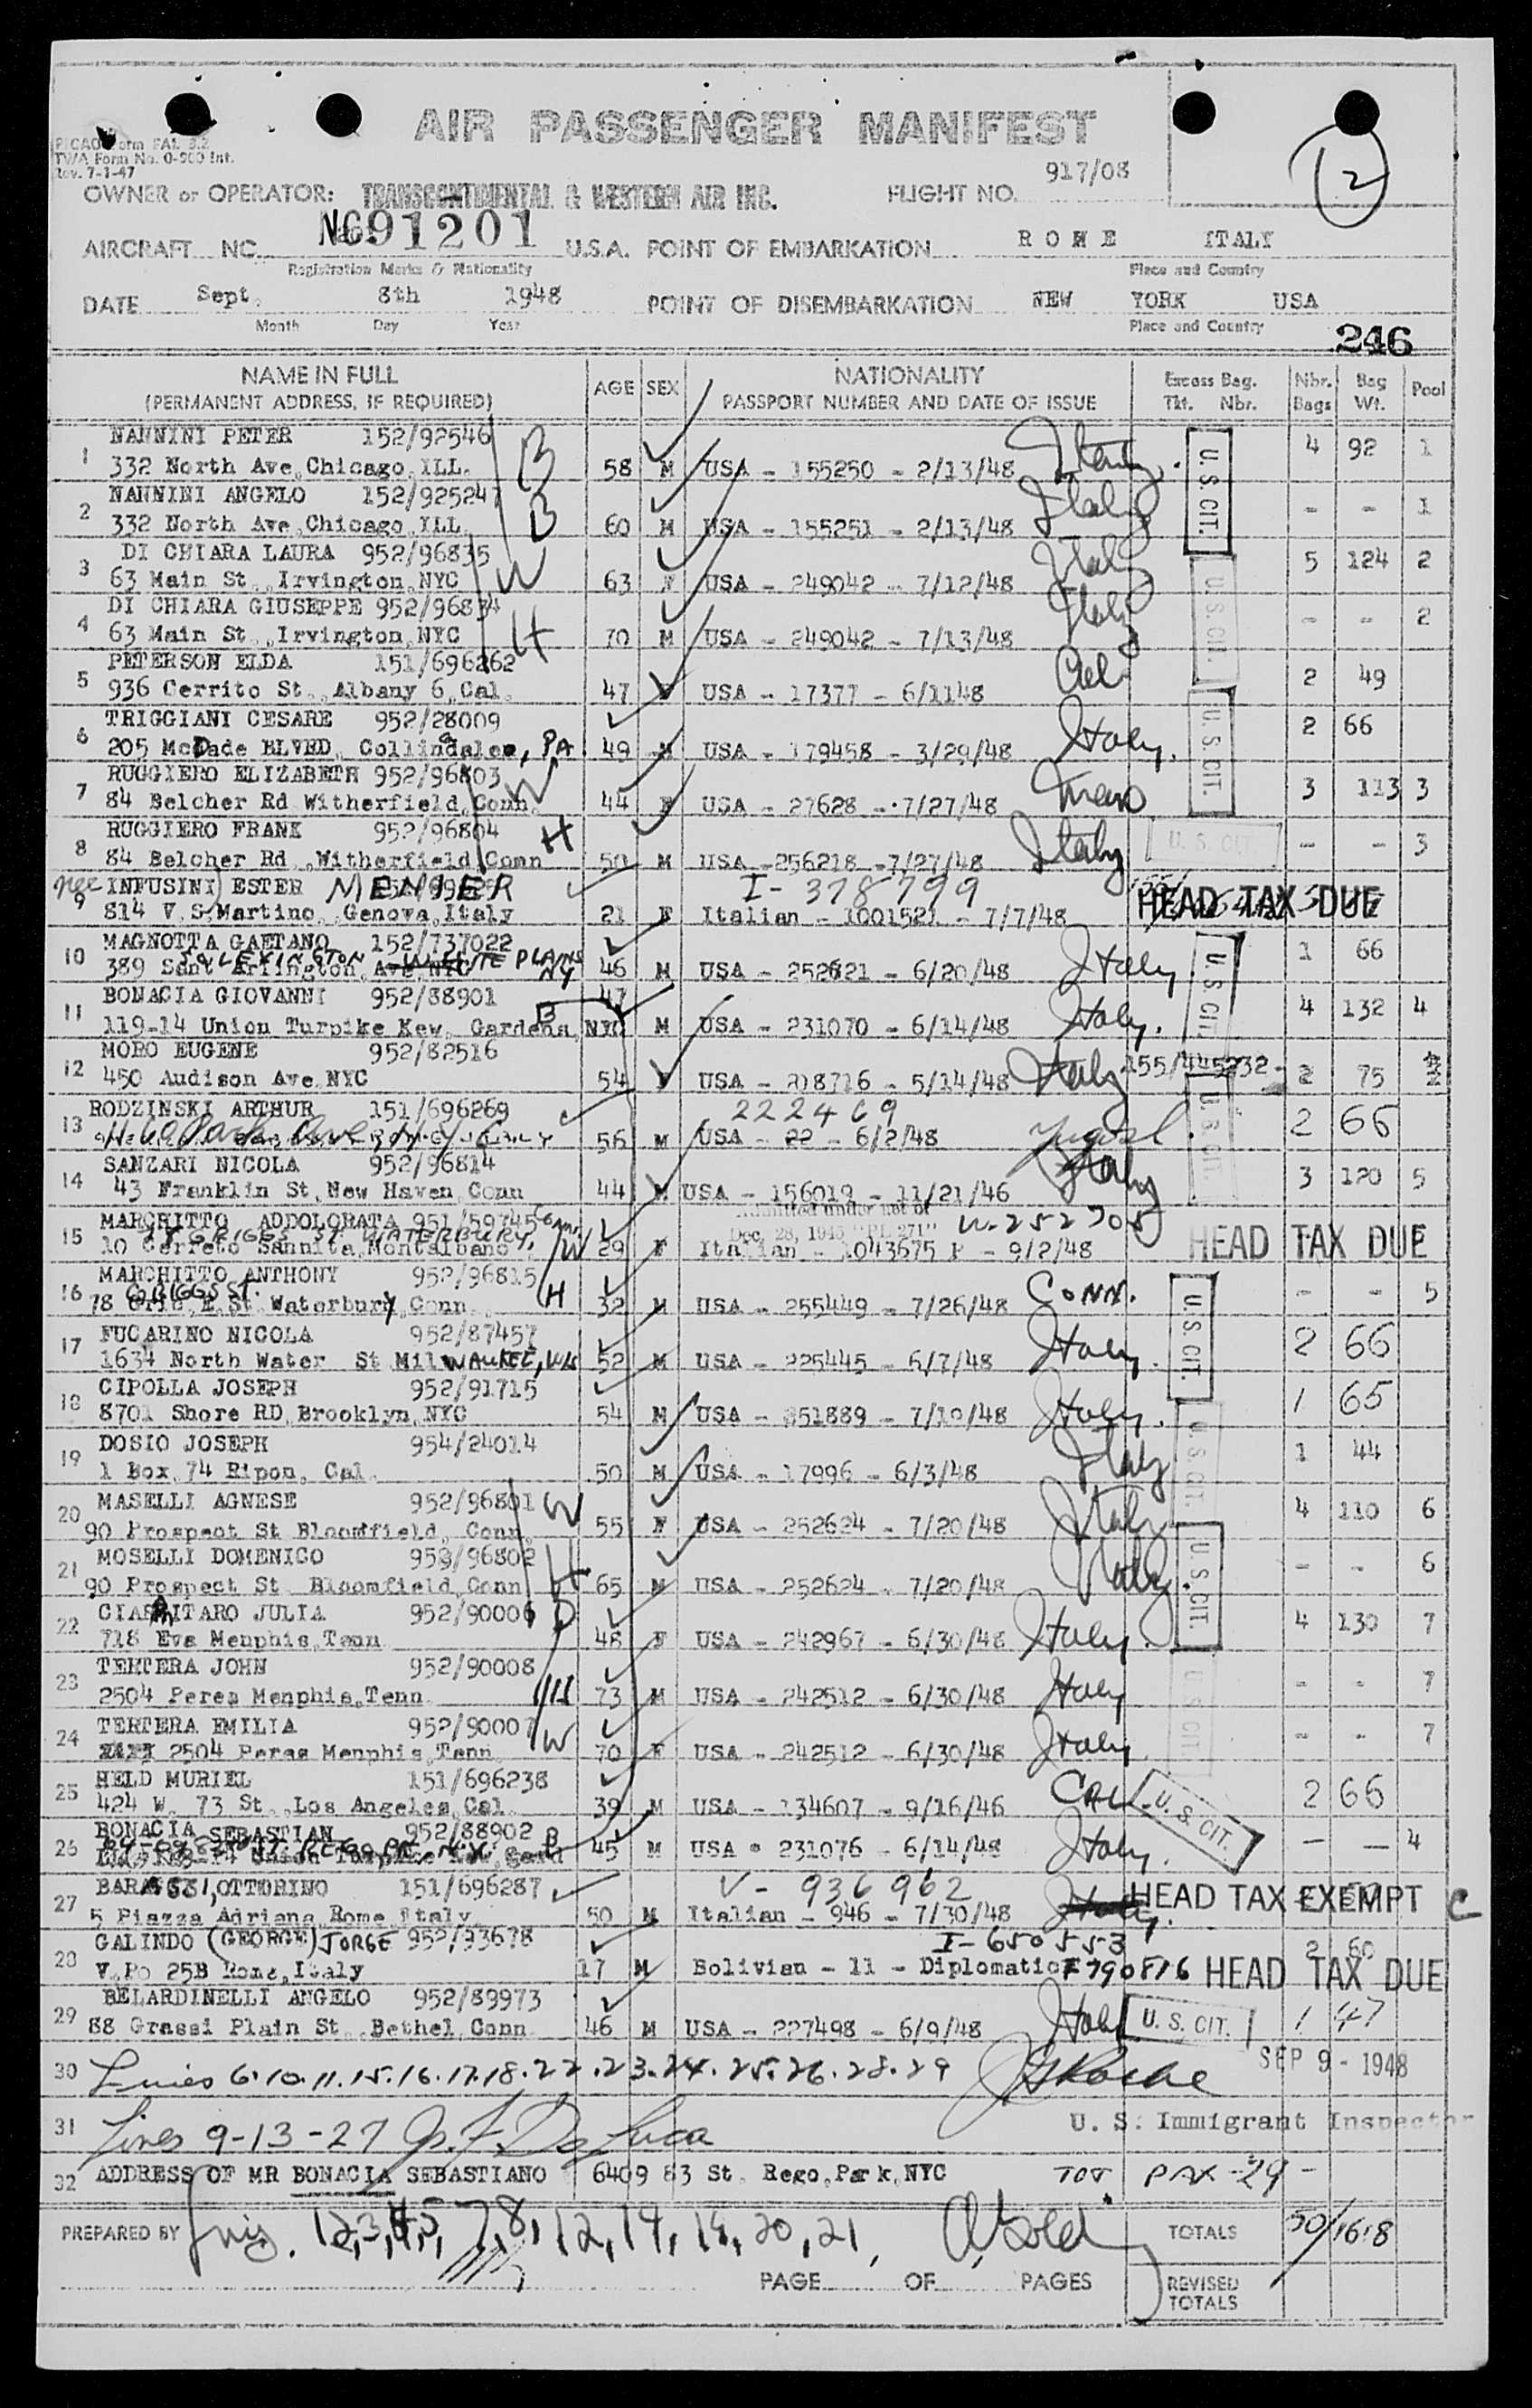 PICAO Form FAL 3.2
TWA Form No. 0-900 Int.
Rev. 7-1-47
AIR PASSENGER MANIFEST
12
OWNER or OPERATOR: TRANSCONTINENTAL & WESTERN AIR INC. FLIGHT NO. 917/08
AIRCRAFT NC NC91201 U.S.A. POINT OF EMBARKATION ROME ITALY
Registration Marks & Nationality Place and Country
DATE Sept. 8th 1948 POINT OF DISEMBARKATION NEW YORK USA
Month Day Year Place and Country
246
NAME IN FULL AGE SEX NATIONALITY Excess Bag. Nbr. Bag Pool
(PERMANENT ADDRESS, IF REQUIRED) PASSPORT NUMBER AND DATE OF ISSUE Tkt. Nbr. Bags Wt.
1 NANNINI PETER 152/92546 B 4 92 1
332 North Ave,Chicago,ILL. 58 M USA - 155250 - 2/13/48 Italy. U.S. CIT.
2 NANNINI ANGELO 152/925247 B - - 1
332 North Ave,Chicago,ILL 60 M USA - 155251 - 2/13/48 Italy
3 DI CHIARA LAURA 952/96835 W 5 124 2
63 Main St.,Irvington,NYC 63 F USA - 249042 - 7/12/48 Italy U.S. CIT.
4 DI CHIARA GIUSEPPE 952/96834 H - - 2
63 Main St.,Irvington,NYC 70 M USA - 249042 - 7/13/48 Italy
5 PETERSON ELDA 151/696262 2 49
936 Cerrito St.,Albany 6,Cal. 47 F USA - 17377 - 6/1148 Cal.
6 TRIGGIANI CESARE 952/28009 2 66
205 McDade BLVED, Collingdalee, PA. 49 M USA - 179458 - 3/29/48 Italy. U.S. CIT.
7 RUGGIERO ELIZABETH 952/96803 W 3 113 3
84 Belcher Rd Witherfield,Conn. 44 F USA - 27628 - 7/27/48
8 RUGGIERO FRANK 952/96804 H - - 3
84 Belcher Rd.,Witherfield,Conn 50 M USA -256218 -7/27/48 Italy U.S. CIT.
nee INFUSINI) ESTER MENIER I- 378799
9 814 V.S.Martino,.Genova,Italy 21 F Italian - 1001521 - 7/7/48 HEAD TAX DUE
10 MAGNOTTA GAETANO 152/737022 1 66
SO LEXINGTON WHITE PLAINS NY
389 Arlington, Ave NYC 46 M USA - 252821 - 6/20/48 Italy. U.S. CIT.
11 BONACIA GIOVANNI 952/88901 B 47 4 132 4
119-14 Union Turpike Kew, Gardens,NYC M USA - 231070 - 6/14/48 Italy.
12 MORO EUGENE 952/82516 155/445232- 2 75
450 Audison Ave,NYC 54 USA - 218716 - 5/14/48 Italy
13 RODZINSKI ARTHUR 151/696269 222469 2 66
Park Ave, N.Y.C. 56 M USA - 22 - 6/2/48 Yugosl. U.S. CIT.
14 SANZARI NICOLA 952/96814 3 120 5
43 Franklin St,New Haven,Conn 44 M USA - 156019 - 11/21/46 Italy
Admitted under Act of
15 MARCHITTO ADDOLORATA 951/59745 Conn. Dec. 28, 1945 "PL 271" W-252705
78 GRIGGS ST WATERBURY,
10 Cerreto Sannita,Montalbano W 29 F Italian - 1043675 P - 9/2/48 HEAD TAX DUE
16 MARCHITTO ANTHONY 952/96815 H CONN. - - 5
GRIGGS ST.
78 E.St. Waterbury,Conn. 32 M USA - 255449 - 7/26/48 U.S. CIT.
17 FUCARINO NICOLA 952/87457 2 66
1634 North Water St MilWAUKEE, WIS 52 M USA - 225445 - 6/7/48 Italy.
18 CIPOLLA JOSEPH 952/91715 1 65
8701 Shore RD,Brooklyn,NYC 54 M USA - 251889 - 7/10/48 Italy. U.S. CIT.
19 DOSIO JOSEPH 954/24014 1 44
1 Box.74 Ripon, Cal. 50 M USA - 17996 - 6/3/48 Italy
20 MASELLI AGNESE 952/96801 W 4 110 6
90 Prospect St Bloomfield, Conn. 55 F USA - 252624 - 7/20/48 Italy
21 MOSELLI DOMENICO 952/96802 H - - 6
90 Prospect St Bloomfield,Conn 65 M USA - 252624 - 7/20/48 Italy. U.S. CIT.
22 JULIA 952/90006 D 4 130 7
718 Eva Menphis,Tenn 48 F USA - 242967 - 6/30/48 Italy.
23 TERTERA JOHN 952/90008 H - - 7
2504 Peres Menphis,Tenn 73 M USA - 242512 - 6/30/48 Italy U.S. CIT.
24 TERTERA EMILIA 952/90007 W - - 7
2504 Peres Menphis,Tenn 70 F USA - 242512 - 6/30/48 Italy
25 HELD MURIEL 151/696238 2 66
424 W. 73 St.,Los Angeles,Cal. 39 M USA - 134607 - 9/16/46 CAL. U.S. CIT.
26 BONACIA SEBASTIAN 952/88902 B — — 4
REGO PK. N.Y.
Union Turpike Kew,Gard 45 M USA - 231076 - 6/14/48 Italy.
27 BARASSI,OTTORINO 151/696287 V- 936962
5 Piazza Adriana,Rome,Italy 50 M Italian - 946 - 7/30/48 HEAD TAX EXEMPT C
28 GALINDO (GEORGE) JORGE 952/93678 I-650553 2 60
V.Po 25B Rome,Italy 17 M Bolivian - 11 - Diplomatic F790816 HEAD TAX DUE
29 BELARDINELLI ANGELO 952/89973
88 Grassi Plain St.,Bethel,Conn 46 M USA - 227498 - 6/9/48 Italy U.S. CIT. 1 47
30 Lines 6.10.11.15.16.17.18.22.23.24.25.26.28.29 SEP 9 - 1948
31 Lines 9-13-27 J. F. De Luca U. S. Immigrant Inspector
32 ADDRESS OF MR BONACIA SEBASTIANO 6409 83 St. Rego,Park,NYC TOT PAX -29-
PREPARED BY Lines. 1,2,3,4,5,7,8,12,14,19,20,21, TOTALS 50/1618
PAGE OF PAGES REVISED
TOTALS